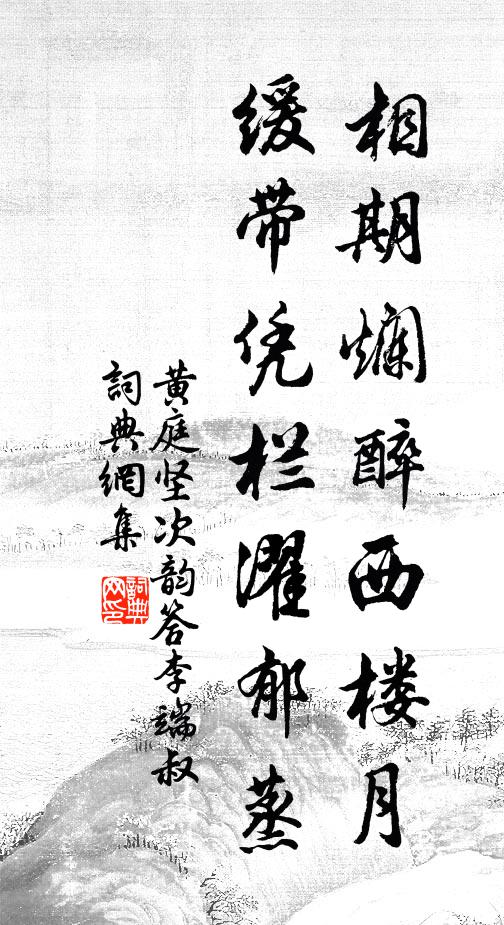 相期爛醉西楼月
缓带凭栏濯郁蒸
黄庭坚次韵答李端叔
詞典網集
詞典網印